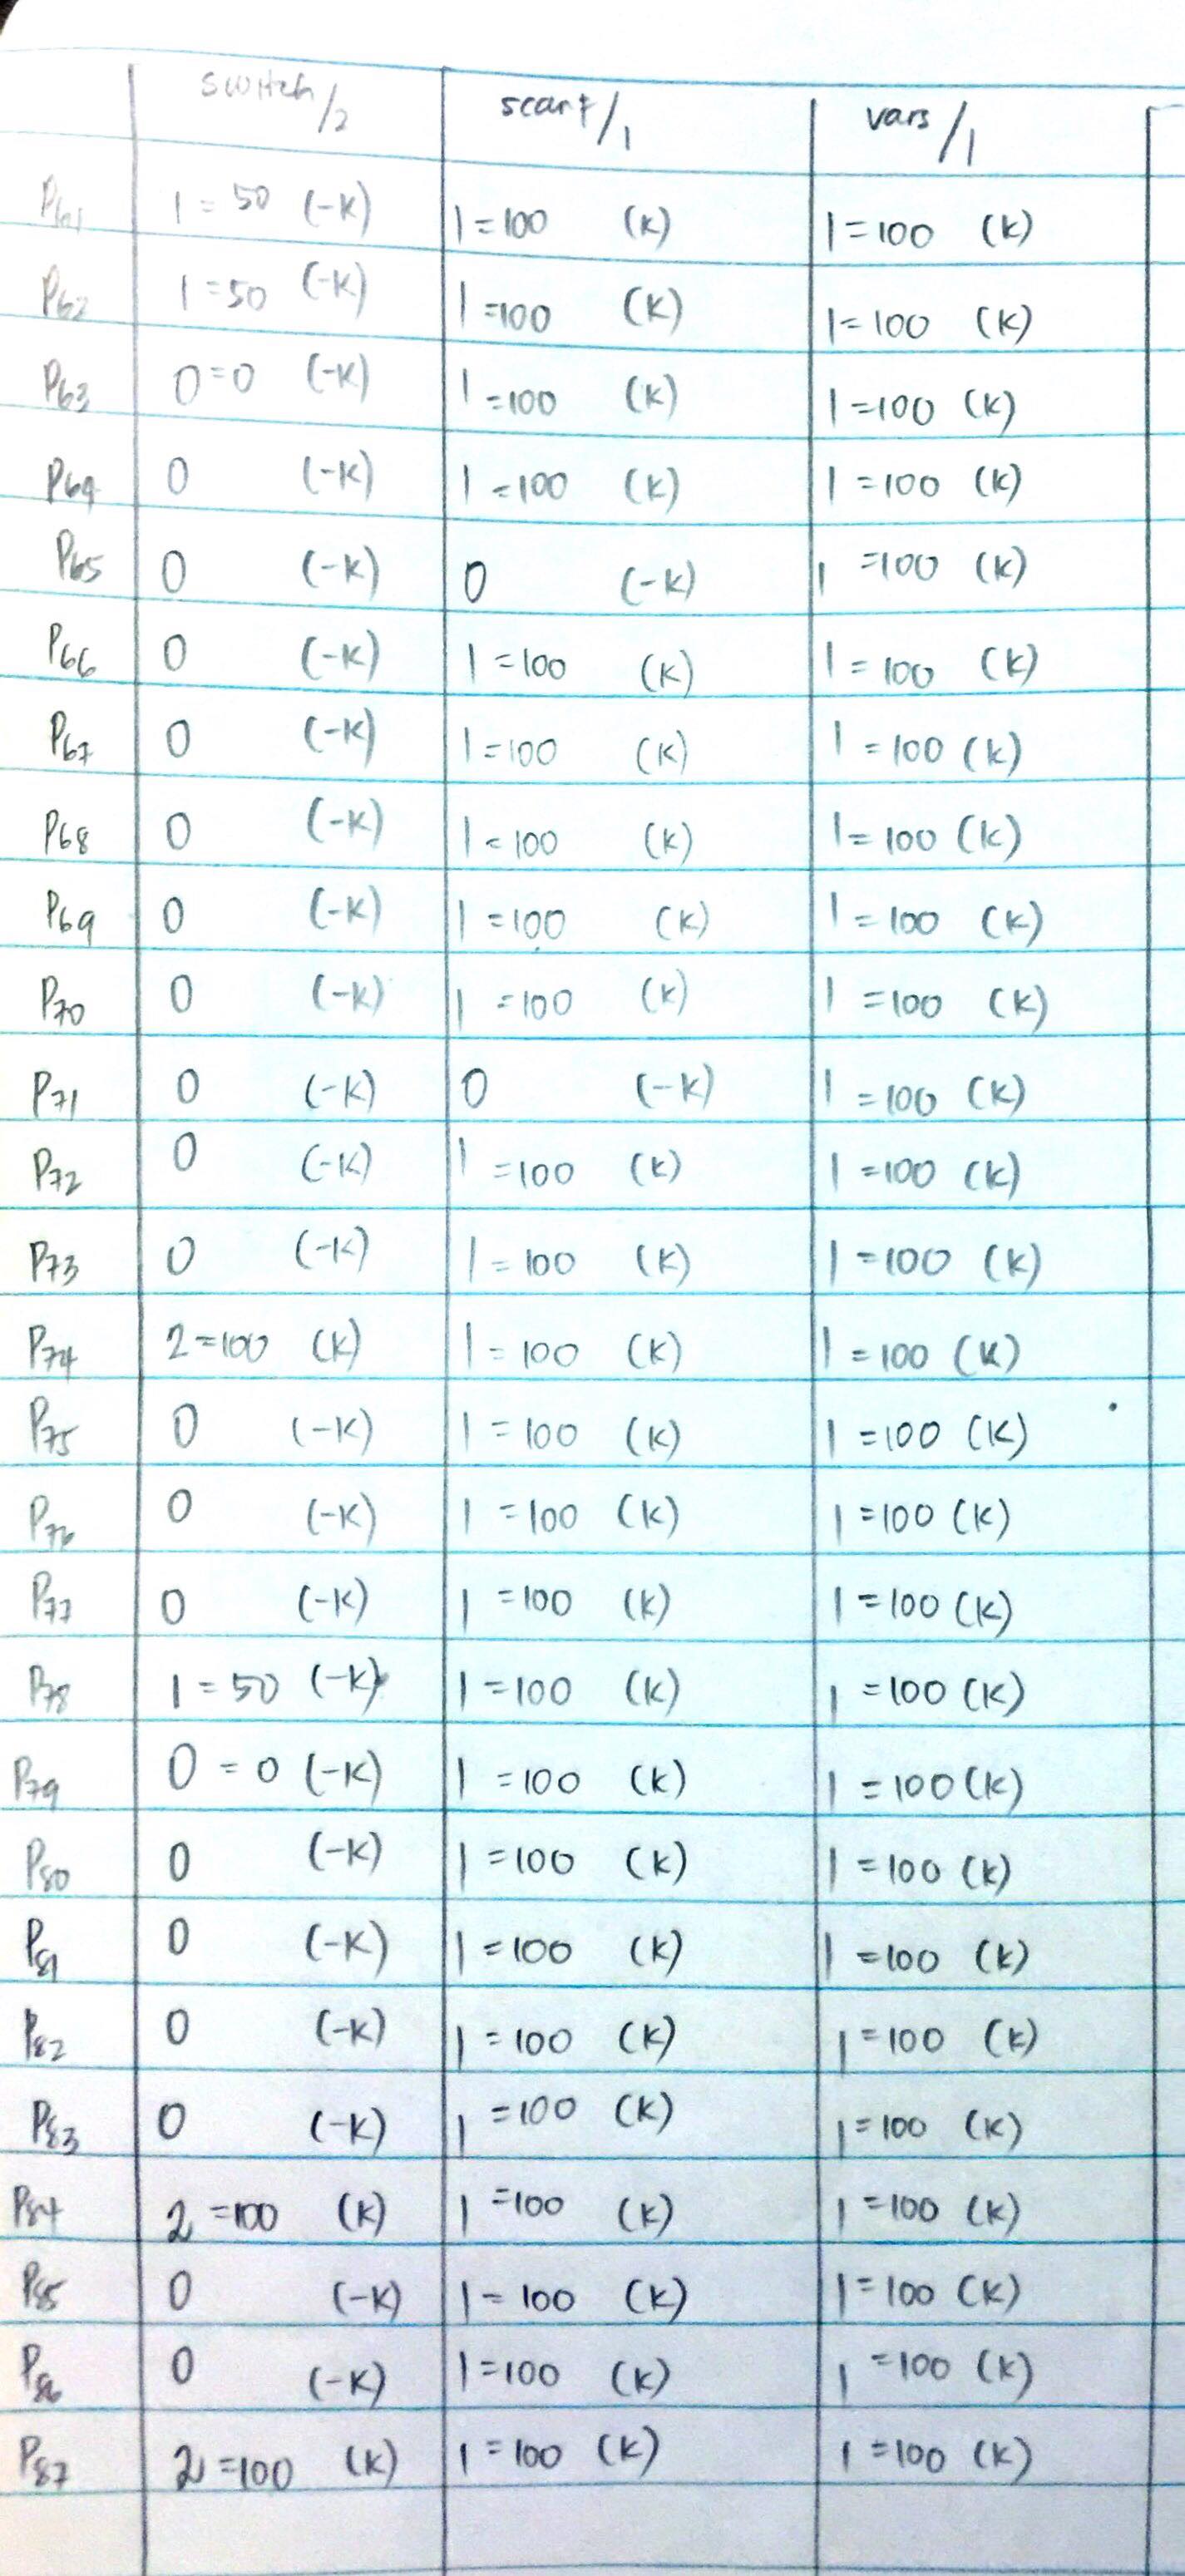 switch/2 scarf/1 vars/1
P61 1=50 (-K) 1=100 (K) 1=100 (K)
P62 1=50 (-K) 1=100 (K) 1=100 (K)
P63 0=0 (-K) 1=100 (K) 1=100 (K)
P64 0 (-K) 1=100 (K) 1=100 (K)
P65 0 (-K) 0 (-K) 1=100 (K)
P66 0 (-K) 1=100 (K) 1=100 (K)
P67 0 (-K) 1=100 (K) 1=100 (K)
P68 0 (-K) 1=100 (K) 1=100 (K)
P69 0 (-K) 1=100 (K) 1=100 (K)
P70 0 (-K) 1=100 (K) 1=100 (K)
P71 0 (-K) 0 (-K) 1=100 (K)
P72 0 (-K) 1=100 (K) 1=100 (K)
P73 0 (-K) 1=100 (K) 1=100 (K)
P74 2=100 (K) 1=100 (K) 1=100 (K)
P75 0 (-K) 1=100 (K) 1=100 (K)
P76 0 (-K) 1=100 (K) 1=100 (K)
P77 0 (-K) 1=100 (K) 1=100 (K)
P78 1=50 (-K) 1=100 (K) 1=100 (K)
P79 0=0 (-K) 1=100 (K) 1=100 (K)
P80 0 (-K) 1=100 (K) 1=100 (K)
P81 0 (-K) 1=100 (K) 1=100 (K)
P82 0 (-K) 1=100 (K) 1=100 (K)
P83 0 (-K) 1=100 (K) 1=100 (K)
P84 2=100 (K) 1=100 (K) 1=100 (K)
P85 0 (-K) 1=100 (K) 1=100 (K)
P86 0 (-K) 1=100 (K) 1=100 (K)
P87 2=100 (K) 1=100 (K) 1=100 (K)